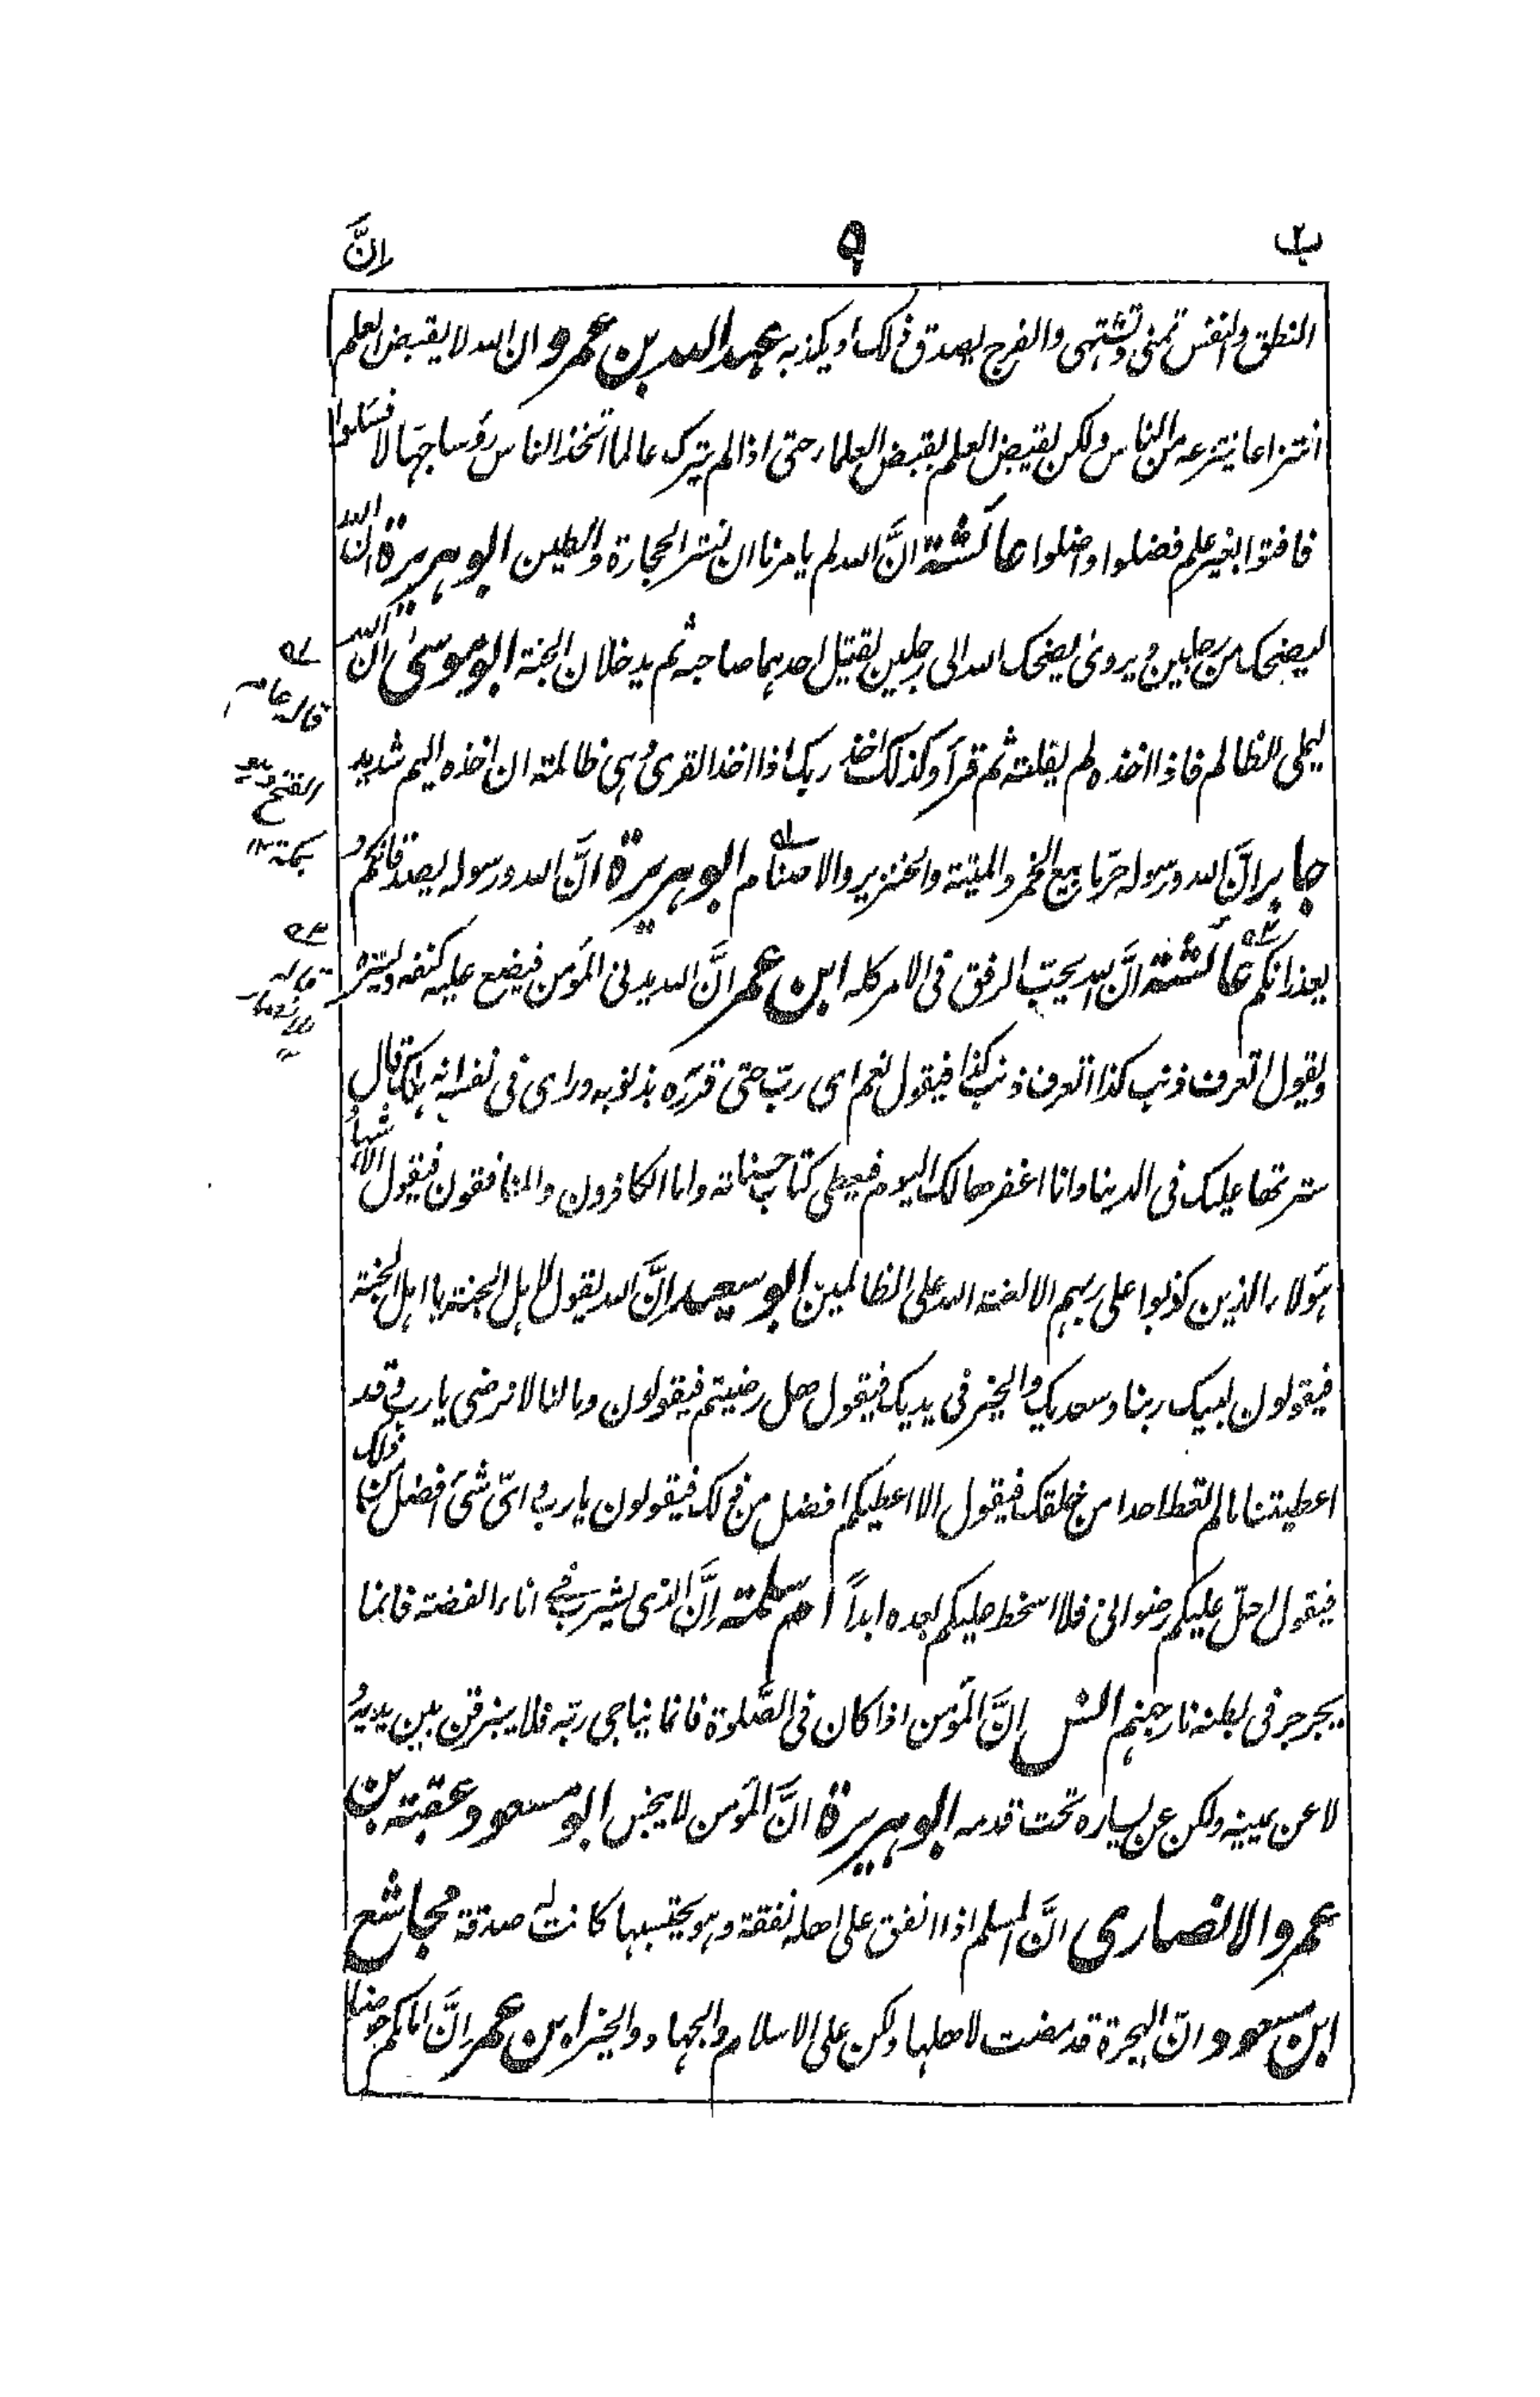 ب٢ ٩ إنَّ
النطق والنفس تمنى وتشتهى والفرج يصدق ذلك او يكذبه عبد الله بن عمرو ان الله لا يقبض العلم
انتزاعا ينتزعه من الناس ولكن يقبض العلم بقبض العلماء حتى اذا لم يترك عالما اتخذ الناس رؤسا جهالا فسئلوا
فافتوا بغير علم فضلوا واضلوا عائشة انَّ الله لم يامرنا ان نستر الحجارة والطين ابو هريرة ان الله
ليضحك من رجلين ويروى يضحك الله الى رجلين يقتل احدهما صاحبه ثم يدخلان الجنة ابو موسىٰ ان الله
ليملى للظالم فاذا اخذه لم يفلته ثم قرأ وكذلك اخذ ربك اذا اخذ القرى وهى ظالمة ان اخذه اليم شديد
جابر انَّ الله ورسوله حرّما بيع الخمر والميتة والخنزير والاصنام ابو هريرة انَّ الله ورسوله يصدقانكم و
يعذرانكم عائشة انَّ الله يحبّ الرفق فى الامر كله ابن عمر انَّ الله يدنى المؤمن فيضع عليه كنفه ويستره
ويقول اتعرف ذنب كذا اتعرف ذنب كذا فيقول نعم اى ربّ حتى قرّره بذنوبه وراى فى نفسه انه هلك قال
سترتها عليك فى الدنيا وانا اغفرها لك اليوم فيعطى كتاب حسناته واما الكافرون والمنافقون فيقول الاشهاد
هؤلاء الذين كذبوا على ربهم الا لعنة الله على الظالمين ابو سعيد انَّ الله يقول لاهل الجنة يا اهل الجنة
فيقولون لبيك ربنا وسعديك والخير فى يديك فيقول هل رضيتم فيقولون وما لنا لا نرضى يا رب وقد
اعطيتنا ما لم تعط احدا من خلقك فيقول الا اعطيكم افضل من ذلك فيقولون يا رب واىّ شئ افضل من ذلك
فيقول احلّ عليكم رضوانى فلا اسخط عليكم بعده ابداً ام سلمة انَّ الذى يشرب فى اناء الفضة فانما
يجرجر فى بطنه نار جهنم انس انَّ المؤمن اذا كان فى الصَّلوة فانما يناجى ربّه فلا يبزقن بين يديه و
لا عن يمينه ولكن عن يساره تحت قدمه ابو هريرة انَّ المؤمن لا ينجس ابو مسعود عقبة بن
عمرو الانصارى انَّ المسلم اذا انفق على اهله نفقة وهو يحتسبها كانت له صدقة مجاشع
ابن مسعود انّ الهجرة قد مضت لاهلها ولكن على الاسلام والجهاد والخير ابن عمر انَّ امامكم حوضا
قاله عام
الفتح وهو
بمكة ١٢
قاله
للانصار